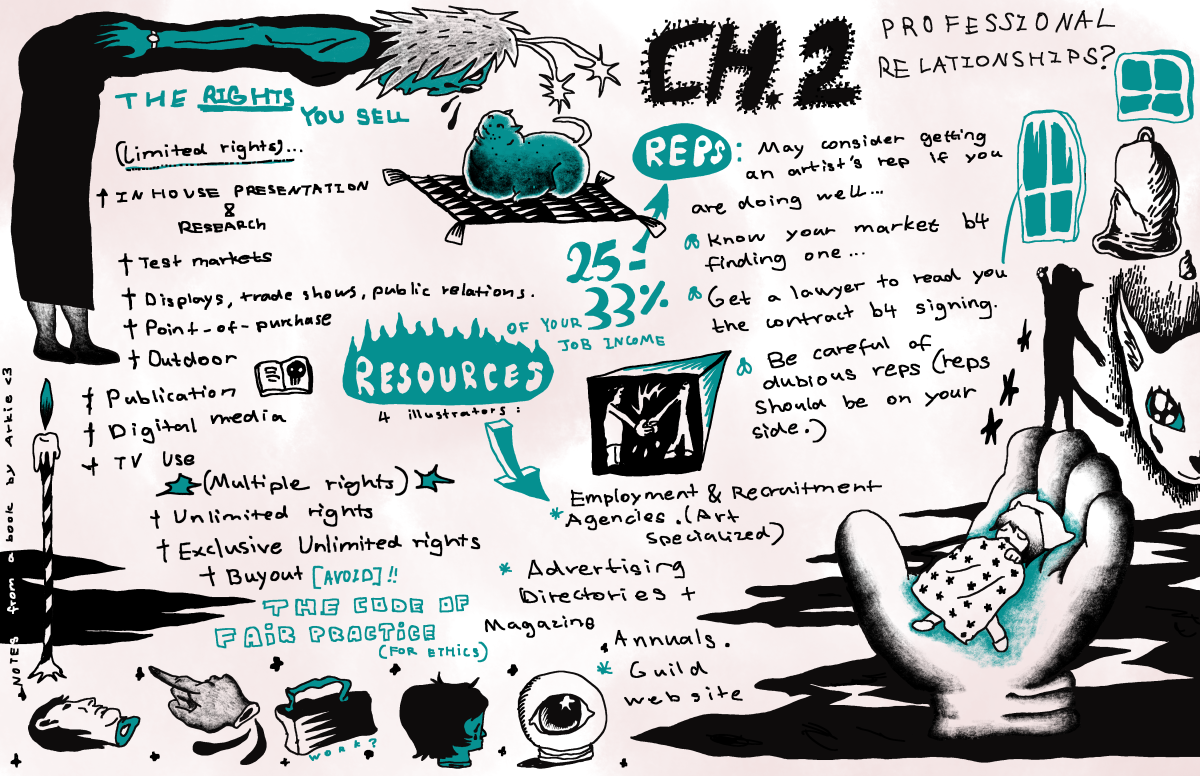 CH. 2
PROFESSIONAL
RELATIONSHIPS?
THE RIGHTS
YOU SELL
(Limited rights)...
† IN HOUSE PRESENTATION
&
RESEARCH
† Test markets
† Displays, trade shows, public relations.
† Point-of-purchase
† Outdoor
† Publication
† Digital media
† TV use
(Multiple rights)
† Unlimited rights
† Exclusive Unlimited rights
† Buyout [AVOID]!!
THE CODE OF
FAIR PRACTICE
(FOR ETHICS)
REPS: May consider getting
an artist's rep if you
are doing well...
Know your market b4
finding one...
Get a lawyer to read you
the contract b4 signing.
Be careful of
dubious reps (reps
should be on your
side.)
25-
33%
OF YOUR
JOB INCOME
RESOURCES
4 illustrators:
* Employment & Recruitment
Agencies. (Art
Specialized)
* Advertising
Directories +
Magazine
Annuals.
* Guild
website
WORK?
NOTES from a book by Arkie <3